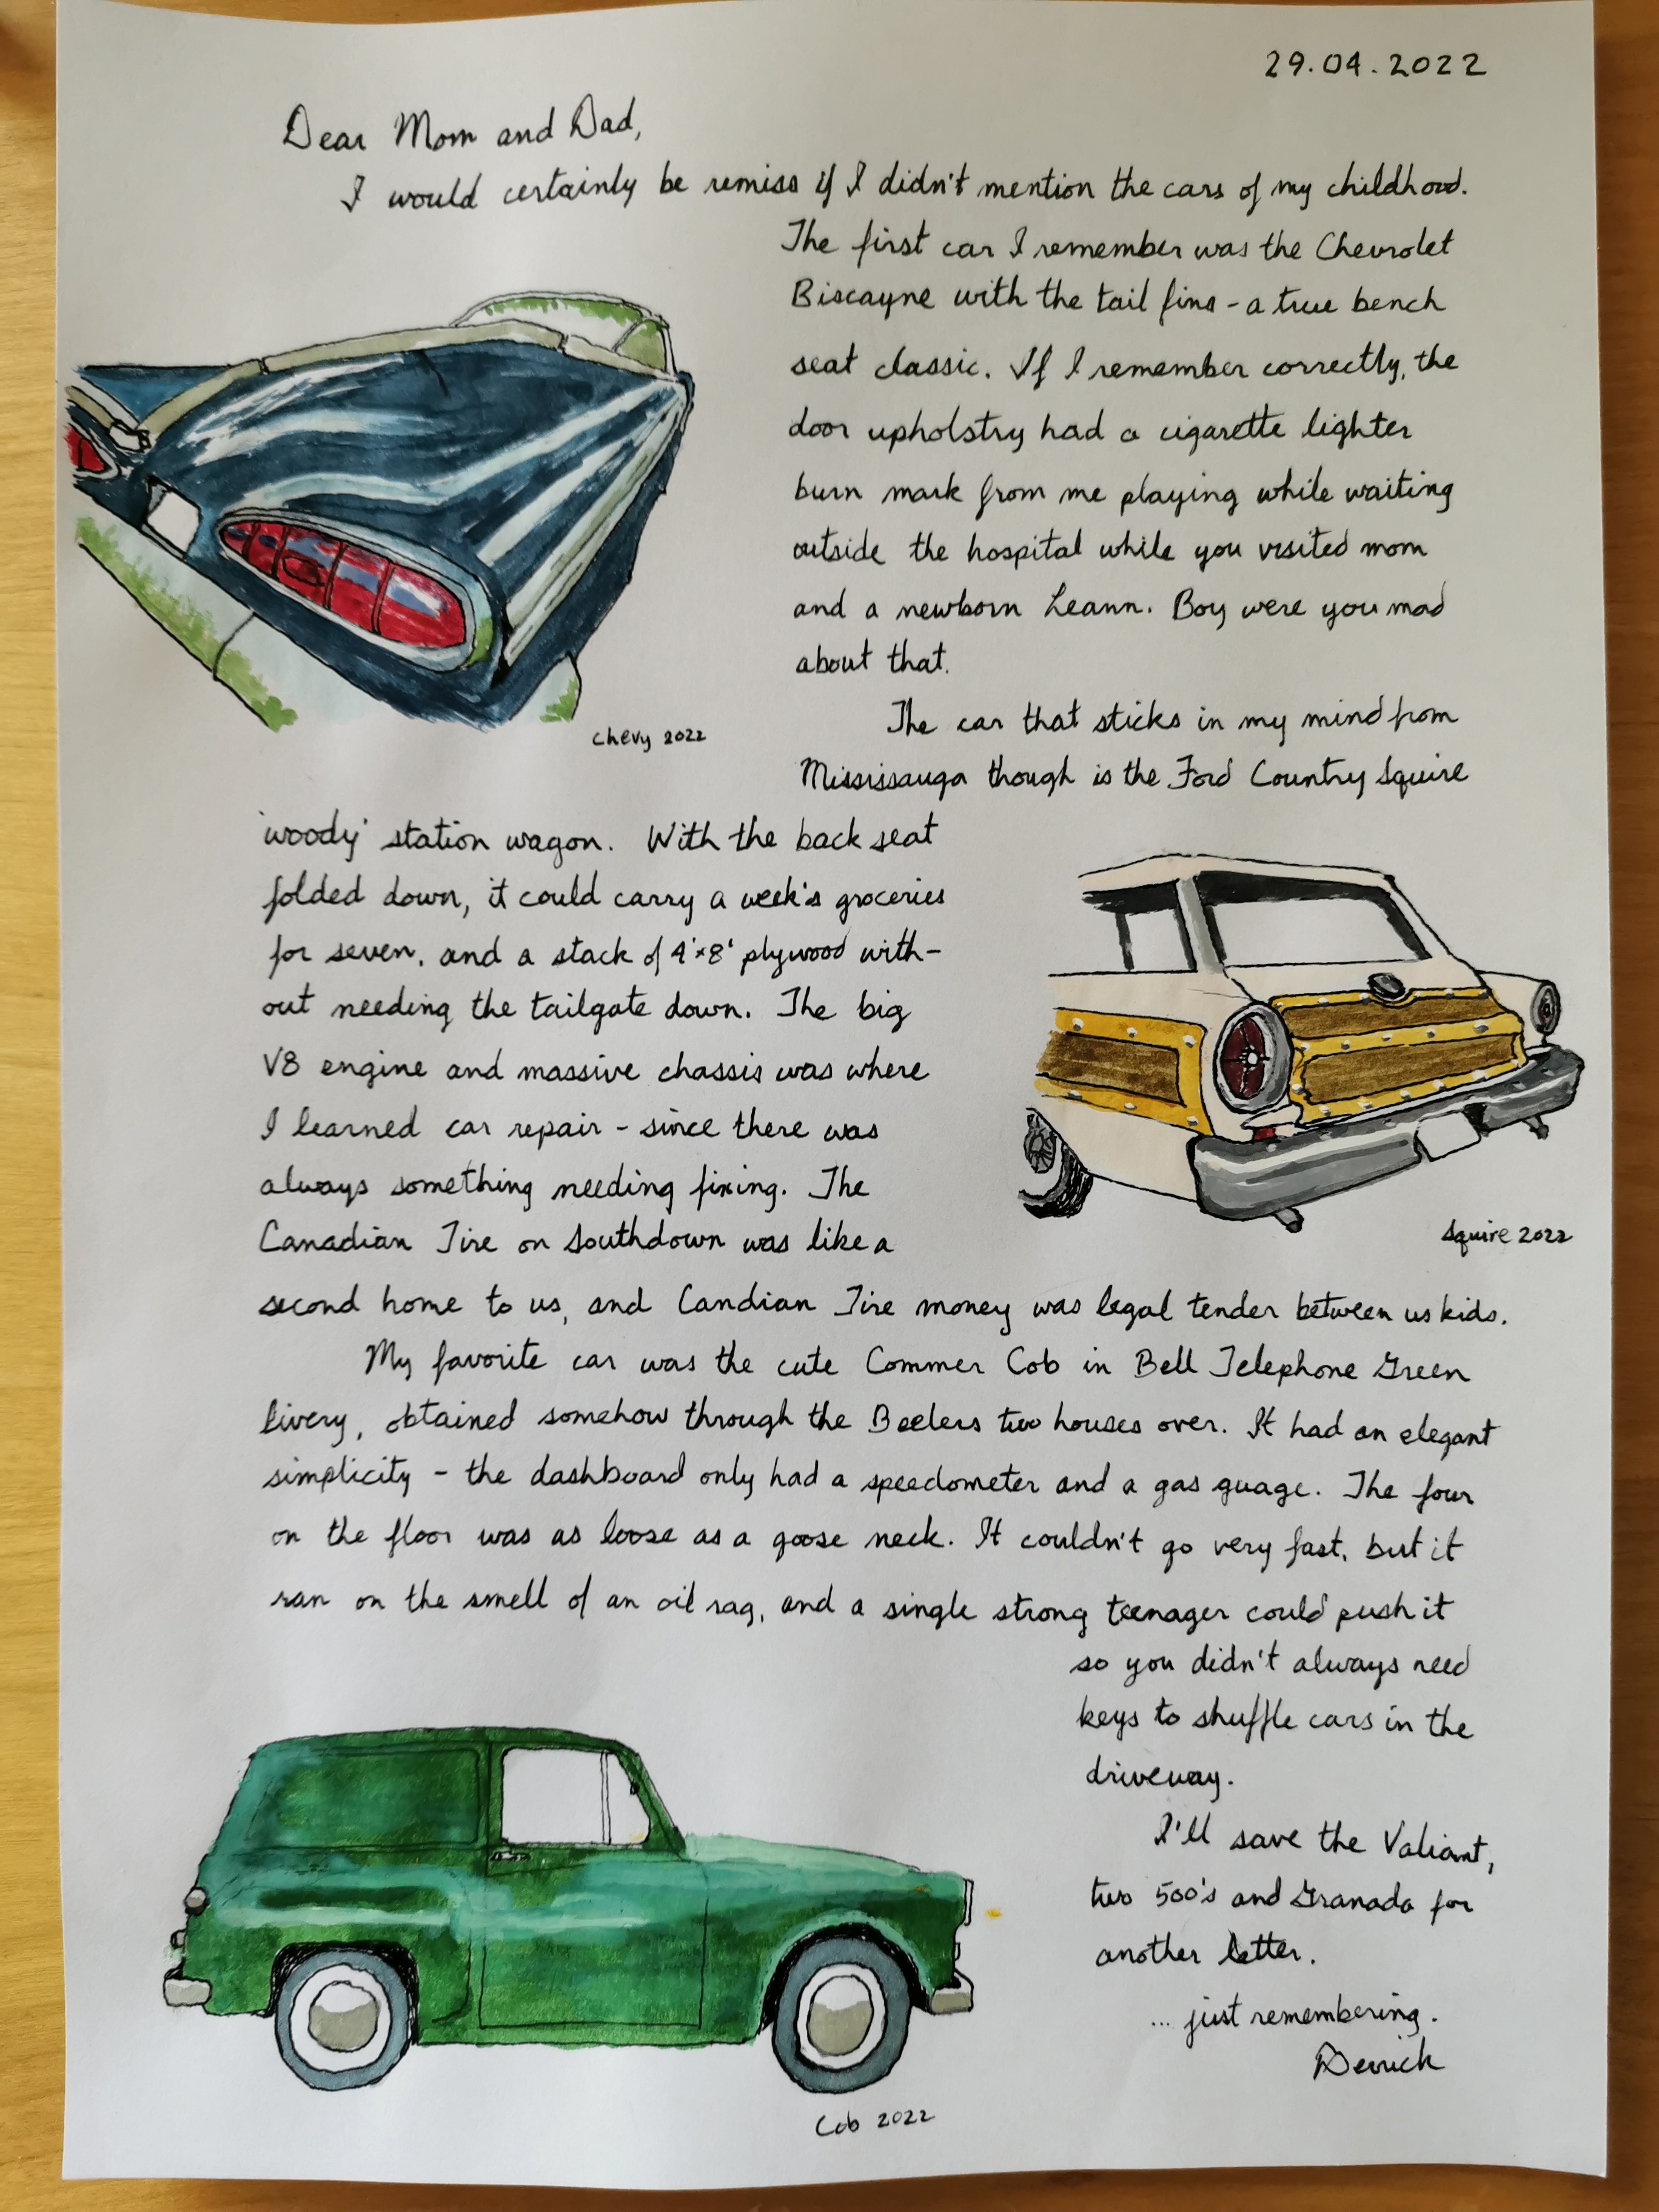 29.04.2022
Dear Mom and Dad,
I would certainly be remiss if I didn't mention the cars of my childhood.
The first car I remember was the Chevrolet
Biscayne with the tail fins - a true bench
seat classic. If I remember correctly, the
door upholstry had a cigarette lighter
burn mark from me playing while waiting
outside the hospital while you visited mom
and a newborn Leann. Boy were you mad
about that.
Chevy 2022
The car that sticks in my mind from
Mississauga though is the Ford Country Squire
'woody' station wagon. With the back seat
folded down, it could carry a week's groceries
for seven, and a stack of 4'x8' plywood with-
out needing the tailgate down. The big
V8 engine and massive chassis was where
I learned car repair - since there was
always something needing fixing. The
Canadian Tire on Southdown was like a
Squire 2022
second home to us, and Candian Tire money was legal tender between us kids.
My favorite car was the cute Commer Cob in Bell Telephone Green
livery, obtained somehow through the Beelers two houses over. It had an elegant
simplicity - the dashboard only had a speedometer and a gas guage. The four
on the floor was as loose as a goose neck. It couldn't go very fast, but it
ran on the smell of an oil rag, and a single strong teenager could push it
so you didn't always need
keys to shuffle cars in the
driveway.
I'll save the Valiant,
two 500's and Granada for
another letter.
... just remembering.
Derrick
Cob 2022